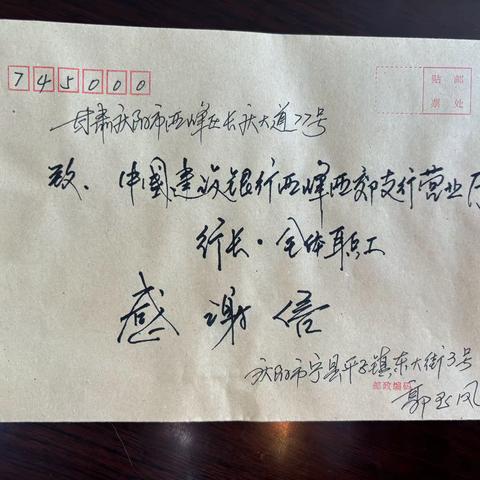 745000
贴邮
票处
甘肃庆阳市西峰区长庆大道77号
致、中国建设银行西峰西郊支行营业
行长·全体职工
感谢信
庆阳市宁县平子镇东大街3号
邮政编码
郭玉凤